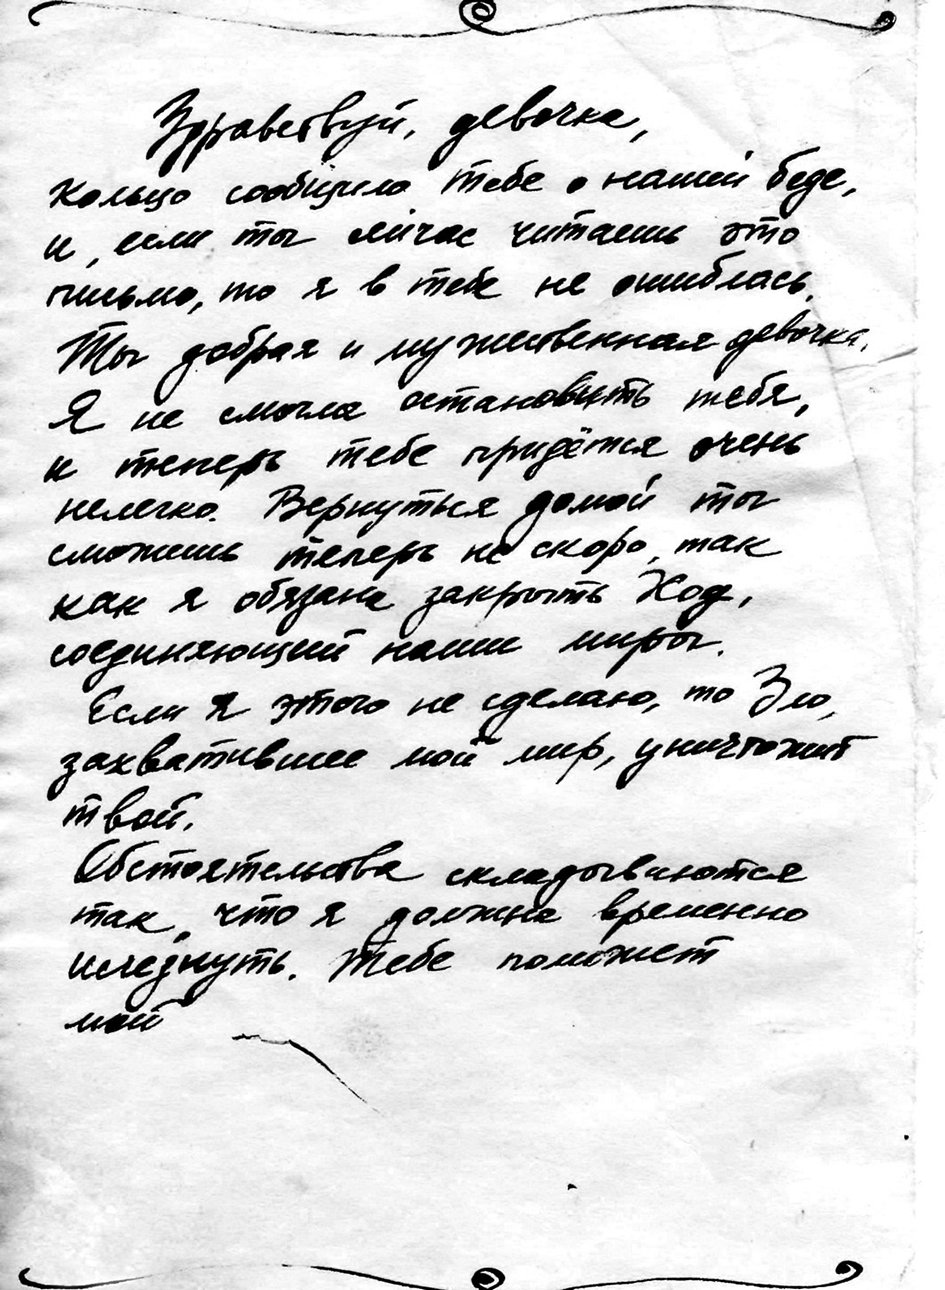 Здравствуй, девочка,
кольцо сообщило тебе о нашей беде,
и, если ты сейчас читаешь это
письмо, то я в тебе не ошиблась.
Ты добрая и мужественная девочка.
Я не смогла остановить тебя,
и теперь тебе придётся очень
нелегко. Вернуться домой ты
сможешь теперь не скоро, так
как я обязана закрыть Ход,
соединяющий наши миры.
Если я этого не сделаю, то Зло,
захватившее мой мир, уничтожит
твой.
Обстоятельства складываются
так, что я должна временно
исчезнуть. Тебе поможет
мой